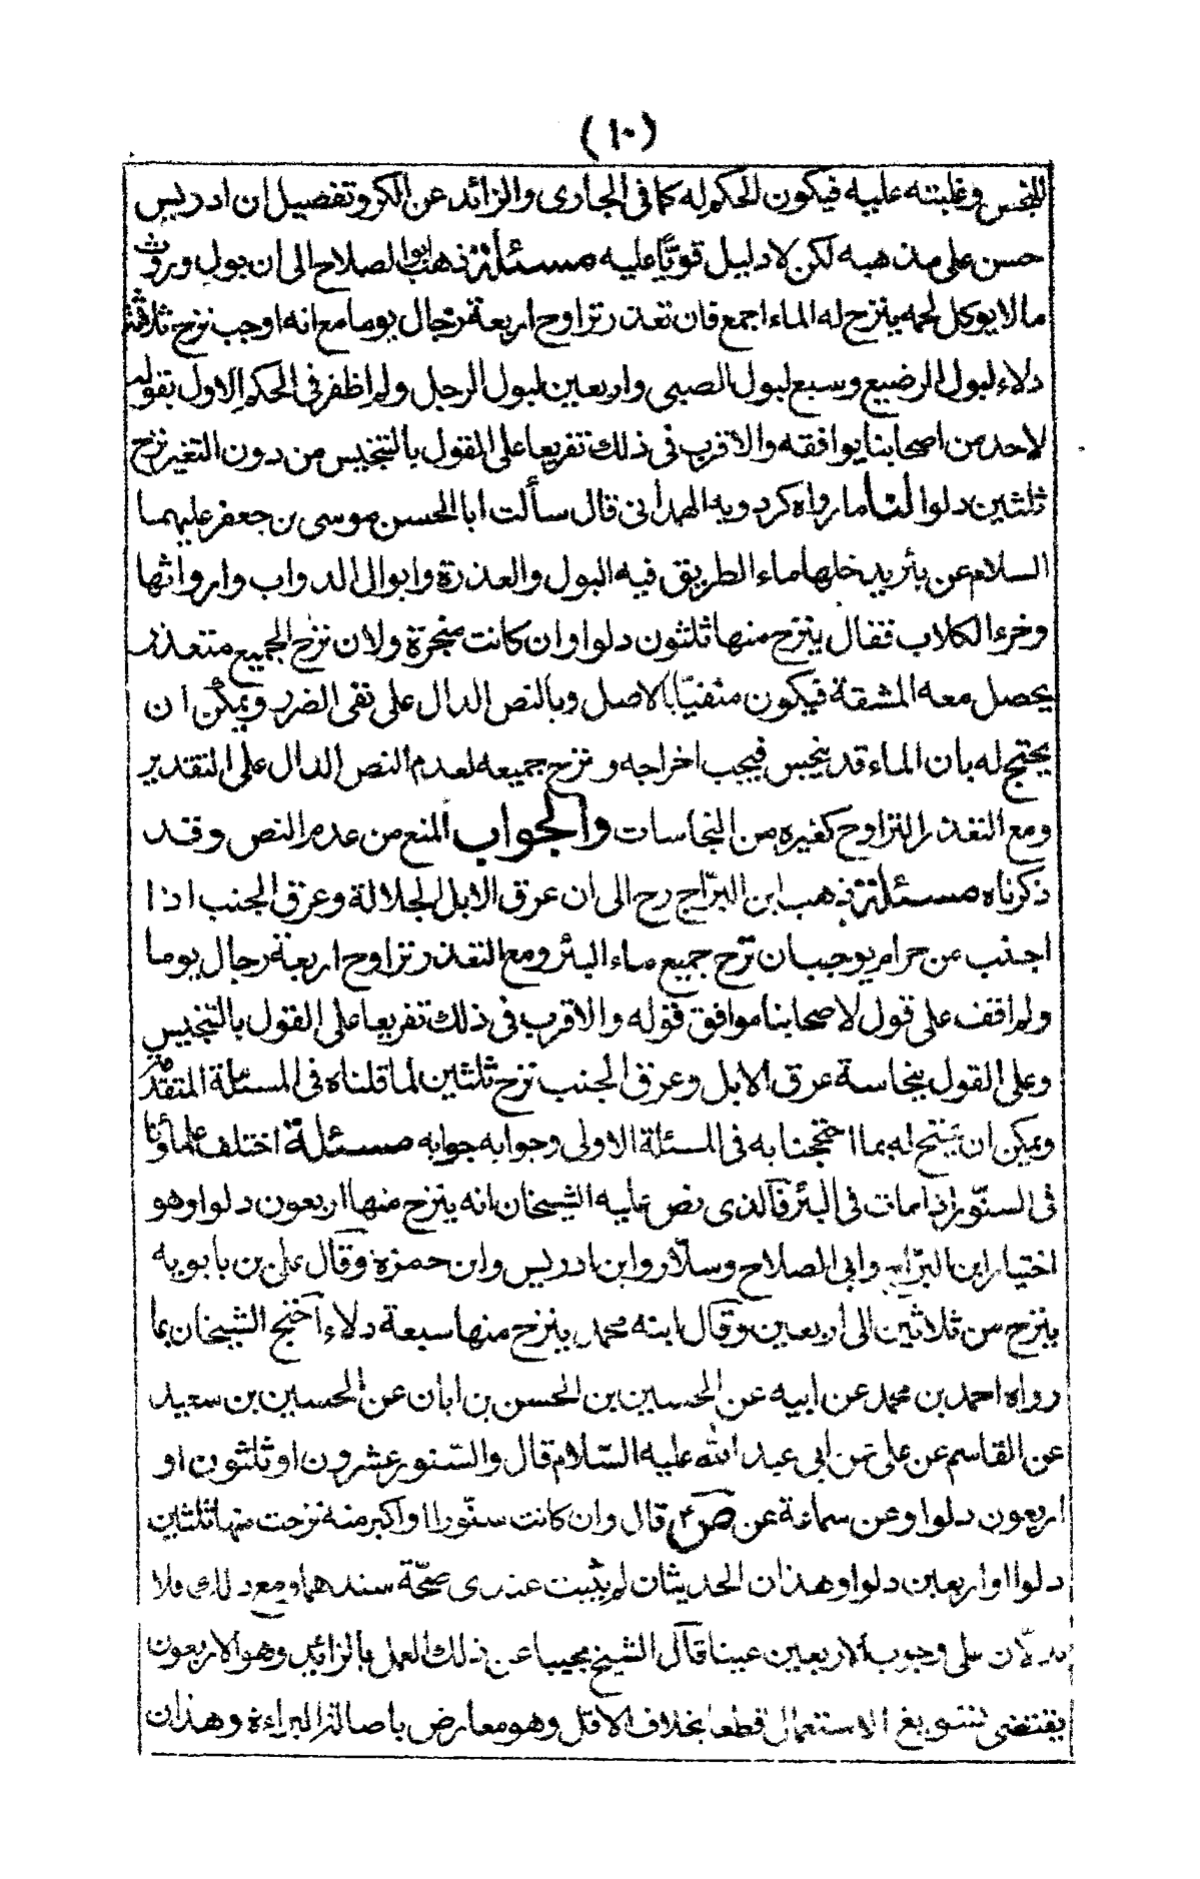 (١٠)
للنجس وغلبته عليه فيكون الحكم له كما فى الجارى والزائد عن الكر وتفصيل ابن ادريس
حسن على مذهبه لكن لا دليل قويًا عليه مسئلة ذهب ابو الصلاح الى ان بول وروث
ما لا يوكل لحمه ينزح له الماء اجمع فان تعذر تراوح اربعة رجال يوما مع انه اوجب نزح ثلاثة
دلاء لبول الرضيع وسبع لبول الصبى واربعين لبول الرجل ولم اظفر فى الحكم الاول بقوله
لاحد من اصحابنا يوافقه والاقرب فى ذلك تفريعا على القول بالتنجيس من دون التغير نزح
ثلثين دلوا لنا ما رواه كردويه الهمدانى قال سألت ابا الحسن موسى بن جعفر عليهما
السلام عن بئر يدخلها ماء الطريق فيه البول والعذرة وابوال الدواب وارواثها
وخرء الكلاب فقال ينزح منها ثلثون دلوا وان كانت منجرة ولان نزح الجميع متعذر
يحصل معه المشقة فيكون منفيًا بالاصل وبالنص الدال على نفى الضرر ويمكن ان
يحتج له بان الماء قد ينجس فيجب اخراجه ونزح جميعه لعدم النص الدال على التقدير
ومع التعذر التراوح كغيره من النجاسات والجواب المنع من عدم النص وقد
ذكرناه مسئلة ذهب ابن البرّاج رح الى ان عرق الابل الجلالة وعرق الجنب اذا
اجنب من حرام يوجبان نزح جميع ماء البئر ومع التعذر تراوح اربعة رجال يوما
ولم اقف على قول لاصحابنا موافق قوله والاقرب فى ذلك تفريعا على القول بالتنجيس
وعلى القول بنجاسة عرق الابل وعرق الجنب نزح ثلثين لما قلناه فى المسئلة المتقدمة
ويمكن ان يحتج له بما احتججنا به فى المسئلة الاولى وجوابه جوابه مسئلة اختلف علماؤنا
فى السنّور اذا مات فى البئر فالذى نص عليه الشيخان انه ينزح منها اربعون دلوا وهو
اختيار ابن البرّاج وابى الصلاح وسلّار وابن ادريس وابن حمزة وقال على بن بابويه
ينزح من ثلاثين الى اربعين وقال ابنه محمد ينزح منها سبعة دلاء احتج الشيخان بما
رواه احمد بن محمد عن ابيه عن الحسين بن الحسن بن ابان عن الحسين بن سعيد
عن القاسم عن على عن ابى عبد الله عليه السّلام قال والسّنور عشرون او ثلثون او
اربعون دلوا وعن سماعة عن ص ع قال وان كانت سنّورا او اكبر منه نزحت منها ثلثين
دلوا او اربعين دلوا وهذان الحديثان لم يثبت عندى صحّة سندهما ومع ذلك فلا
يدلّان على وجوب الاربعين عينا قال الشيخ مجيبا عن ذلك العمل بالزائد وهو الاربعون
يقتضى تسويغ الاستعمال قطعا بخلاف الاقل وهو معارض باصالة البراءة وهذان